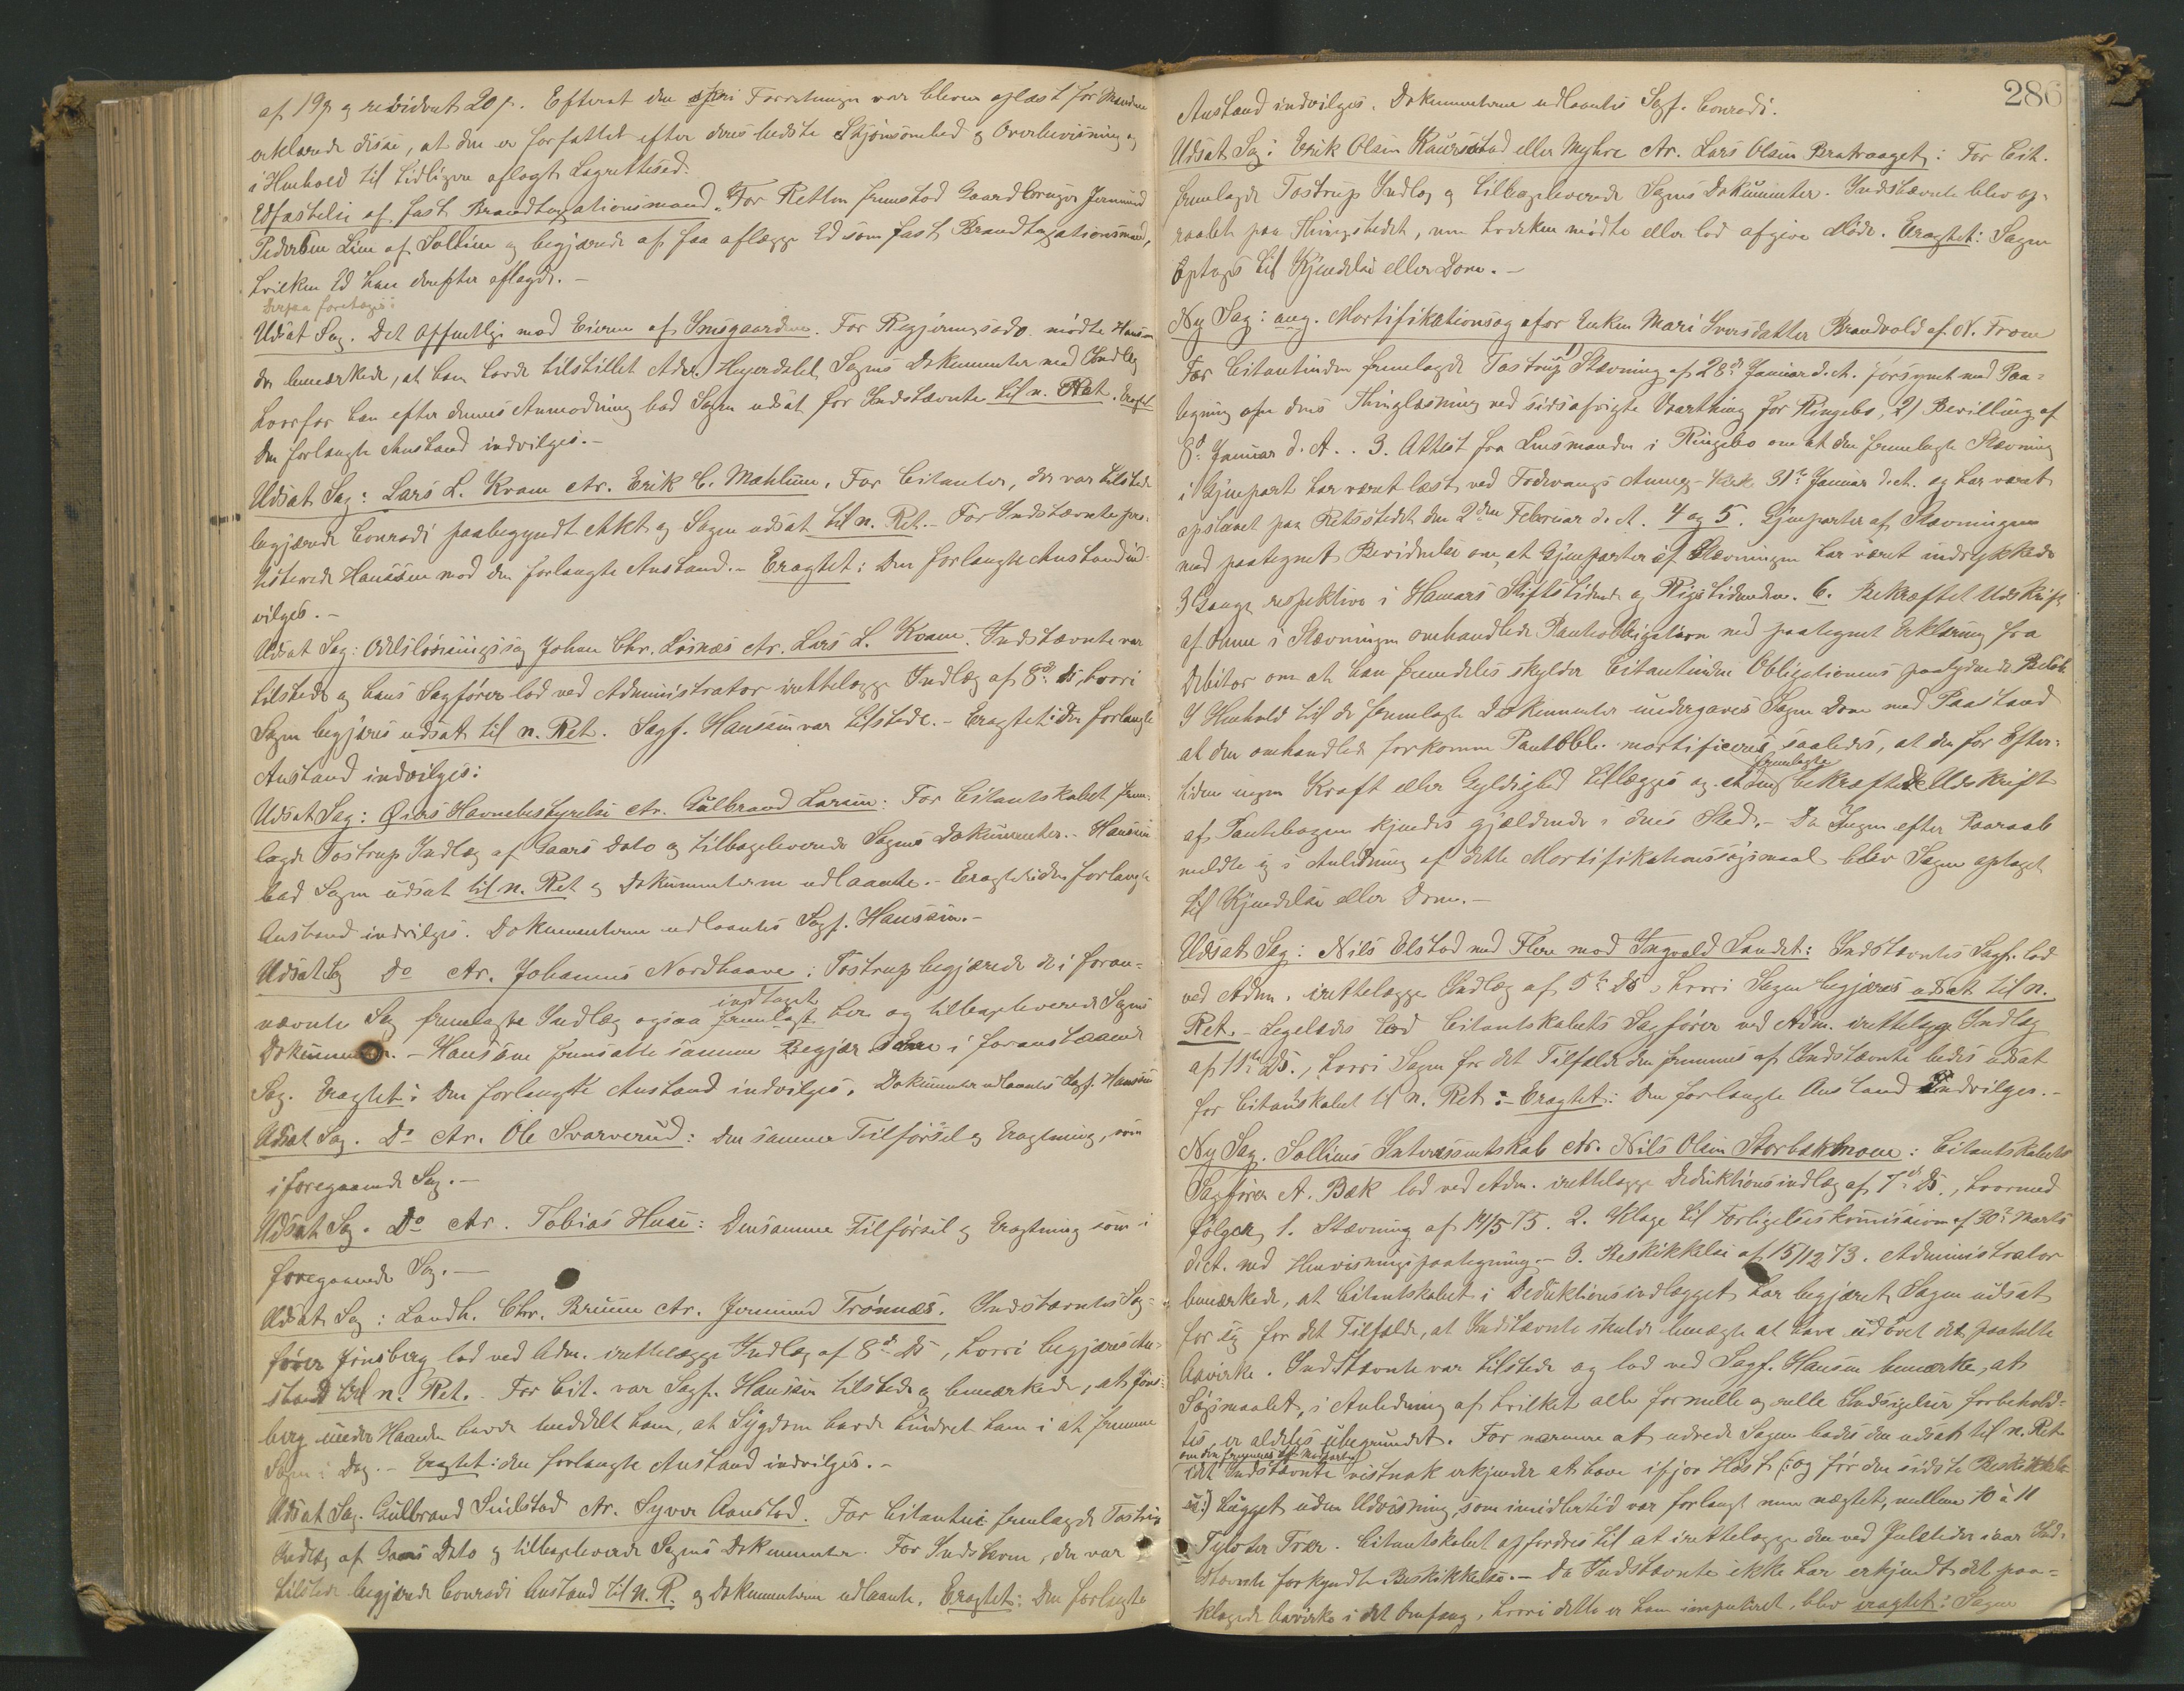 af 19β og residvat 20β. Efterat den Forretningen var bleven oplæst for Mændene
erklærede disse, at den er forfattet efter deres bedste Skjönsomhed og Overbevisning og
i Henhold til tidligere aflagt Lagrettesed.
Edfæstelse af fast Brandtaxationsmand. For Retten fremstod Gaardbruger Jermund
Pedersen Lien af Sollien og begjærede at faa aflægge Ed som fast Brandtaxationsmand,
hvilken Ed han derefter aflagde. -
Derpaa foretoges:
Udsat Sag. Det Offentlige mod Eierne af Imsgaardene. For Regjeringsadv. mödte Hansen
der bemærkede, at han havde tilstillet Adv. Heyerdahl Sagens Dokumenter med Indlæg
hvorfor han efter dennes Anmodning bad Sagen udsat for Indstævnte til n. Ret. Eragtet
den forlangte Anstand indvilges. -
Udsat Sag: Lars L. Kvam ctr. Erik C. Mæhlum. For Citanten, der var tilstede
begjærede Conradi paabegyndt Akt og Sagen udsat til n. Ret. - For Indstævnte pro-
testerede Hanssen mod den forlangte Anstand. - Eragtet: Den forlangte Anstand ind-
vilges. -
Udsat Sag: Odelslösningssag Johan Chr. Losnæs ctr. Lars L. Kvam. Indstævnte var
tilstede og hans Sagförer lod ved Administrator irettelægge Indlæg af 8de ds, hvori
Sagen begjæres udsat til n. Ret. Sagf. Hanssen var tilstede. - Eragtet: Den forlangte
Anstand indvilges:
Udsat Sag: Öiers Havnebestyrelse ctr. Gulbrand Larsen: For Citantskabet frem-
lagde Tostrup Indlæg af Gaars Dato og tilbageleverede Sagens Dokumenter. - Hanssen
bad Sagen udsat til n. Ret og Dokumenterne udlaante. - Eragtet: den forlangte
Anstand indvilges. Dokumenterne udlaantes Sagf. Hanssen. -
Udsat Sag Do ctr. Johannes Nordhaave: Tostrup begjærede de i foran-
nævnte Sag fremlagte Indlæg ogsaa indtaget fremlagt her og tilbageleverede Sagens
Dokumenter. - Hanssen fremsatte samme Begjær som i foranstaaende
Sag. Eragtet: Den forlangte Anstand indvilges. Dokumenter udlaantes Sagf. Hanssen
Udsat Sag. Do ctr. Ole Svarverud: Den samme Tilförsel og Eragtning, som
i foregaaende Sag. -
Udsat Sag. Do ctr. Tobias Huse: Den samme Tilförsel og Eragtning som i
foregaaende Sag. -
Udsat Sag: Landh. Chr. Bruun ctr. Jermund Trönnæs. Indstævntes Sag-
förer Jönsberg lod ved Adm. irettelægge Indlæg af 8de ds, hvori begjæres An-
stand til n. Ret. For Cit. var Sagf. Hanssen tilstede og bemærkede, at Jöns-
berg under Haanden havde meddelt ham, at Sygdom havde hindret ham i at fremme
Sagen i Dag. - Eragtet: den forlangte Anstand indvilges. -
Udsat Sag. Gulbrand Snilstad ctr. Syver Aanstad. For Citanten fremlagde Tostrup
Indlæg af Gaars Dato og tilbageleverede Sagens Dokumenter. For Indstævnte, der var
tilstede begjærede Conradi Anstand til n. R. og Dokumenterne udlaante. Eragtet: Den forlangte
286
Anstand indvilges. Dokumenterne udlaantes Sagf. Conradi.
Udsat Sag: Erik Olsen Kaurstad eller Myhre ctr. Lars Olsen Bratvaaget: For Cit.
fremlagde Tostrup Indlæg og tilbageleverede Sagens Dokumenter. Indstævnte blev op-
raabt paa Thingstedet, men hverken mödte eller lod afgive Möde. Eragtet: Sagen
optages til Kjendelse eller Dom. -
Ny Sag: ang. Mortifikationssag for Enken Mari Iversdatter Brandvold af N. Fron
For Citantinden fremlagde Tostrup 1) Stævning af 28de Januar d.A. forsynet med Paa-
tegning om dens Thinglæsning ved sidsafvigte Vaarthing for Ringebo, 2) Bevilling af
8de Januar d. A. . 3. Attest fra Lensmanden i Ringebo om at den fremlagte Stævning
i Gjenpart har været læst ved Fodvangs Annex-Kirke 31te Januar d.A. og har været
opslaaet paa Retsstedet den 2den Februar d. A. 4 og 5. Gjenparter af Stævningen
med paategnet Bevidnelse om, at Gjenparter af Stævningen har været indrykkede
3 Gange respektive i Hamars Stiftstidende og Rigstidenden. 6. Bekræftet Udskrift
af denne i Stævningen omhandlede Panteobligation med paategnet Erklæring fra
Debitor om at han fremdeles skylder Citantinden Obligationens paalydende Belöb
I Henhold til de fremlagte Dokumenter indgaves Sagen Dom med Paastand
at den omhandlede forkomne Panteobl. mortificeres saaledes, at den for Efter-
tiden ingen Kraft eller Gyldighed tillægges og at den fremlagte bekræftede Udskrift
af Pantebogen kjendes gjældende i dens Sted. - Da Ingen efter Paaraab
meldte sig i Anledning af dette Mortifikationssögsmaal blev Sagen optaget
til Kjendelse eller Dom. -
Udsat Sag: Nils Elstad med Flere mod Ingvald Sandet: Indstævntes Sagf. lod
ved Adm. irettelægge Indlæg af 5te ds, hvori Sagen begjæres udsat til n.
Ret. - Ligeledes lod Citantskabets Sagförer ved Adm. irettelægge Indlæg
af 11te ds., hvori Sagen for det Tilfælde den fremmes af Indstævnte bedes udsat
for Citantskabet til n. Ret: - Eragtet: Den forlangte Anstand indvilges. -
Ny Sag. Solliens Interessentskab ctr. Nils Olsen Storbækmoen: Citantskabets
Sagförer A. Bæk lod ved Adm. irettelægge Deduktionsindlæg af 7de ds., hvormed
fölger 1. Stævning af 14/5 75. 2. Klage til Forligelseskommission af 30te Marts
d.A. med Henvisningspaategning. - 3. Beskikkelse af 15/12 73. Administrator
bemærkede, at Citantskabet i Deduktionsindlægget har begjæret Sagen udsat
for sig for det Tilfælde, at Indstævnte skulde benægte at have udövet det paatalte
Aavirke. Indstævnte var tilstede og lod ved Sagf. Hansen bemærke, at
Sögsmaalet, i Anledning af hvilket alle formelle og reelle Indsigelser forbehold-
tes er aldeles ubegrundet. For nærmere at udrede Sagen bades den udsat til n. Ret
om den fremmes af Modparten
idet Indstævnte vistnok erkjender at have ifjor Höst (: og för den sidste Beskikkel-
se:) hugget uden Udvisning, som imidlertid var forlangt men nægtet, mellem 10 à 11
Tylvter Træer. Citantskabet opfordres til at irettelægge den ved Juletider ivaar Ind-
stævnte forkyndte Beskikkelse. - Da Indstævnte ikke har erkjendt det paa-
klagede Aavirke i det Omfang, hvori dette er ham imputeret, blev eragtet: Sagen